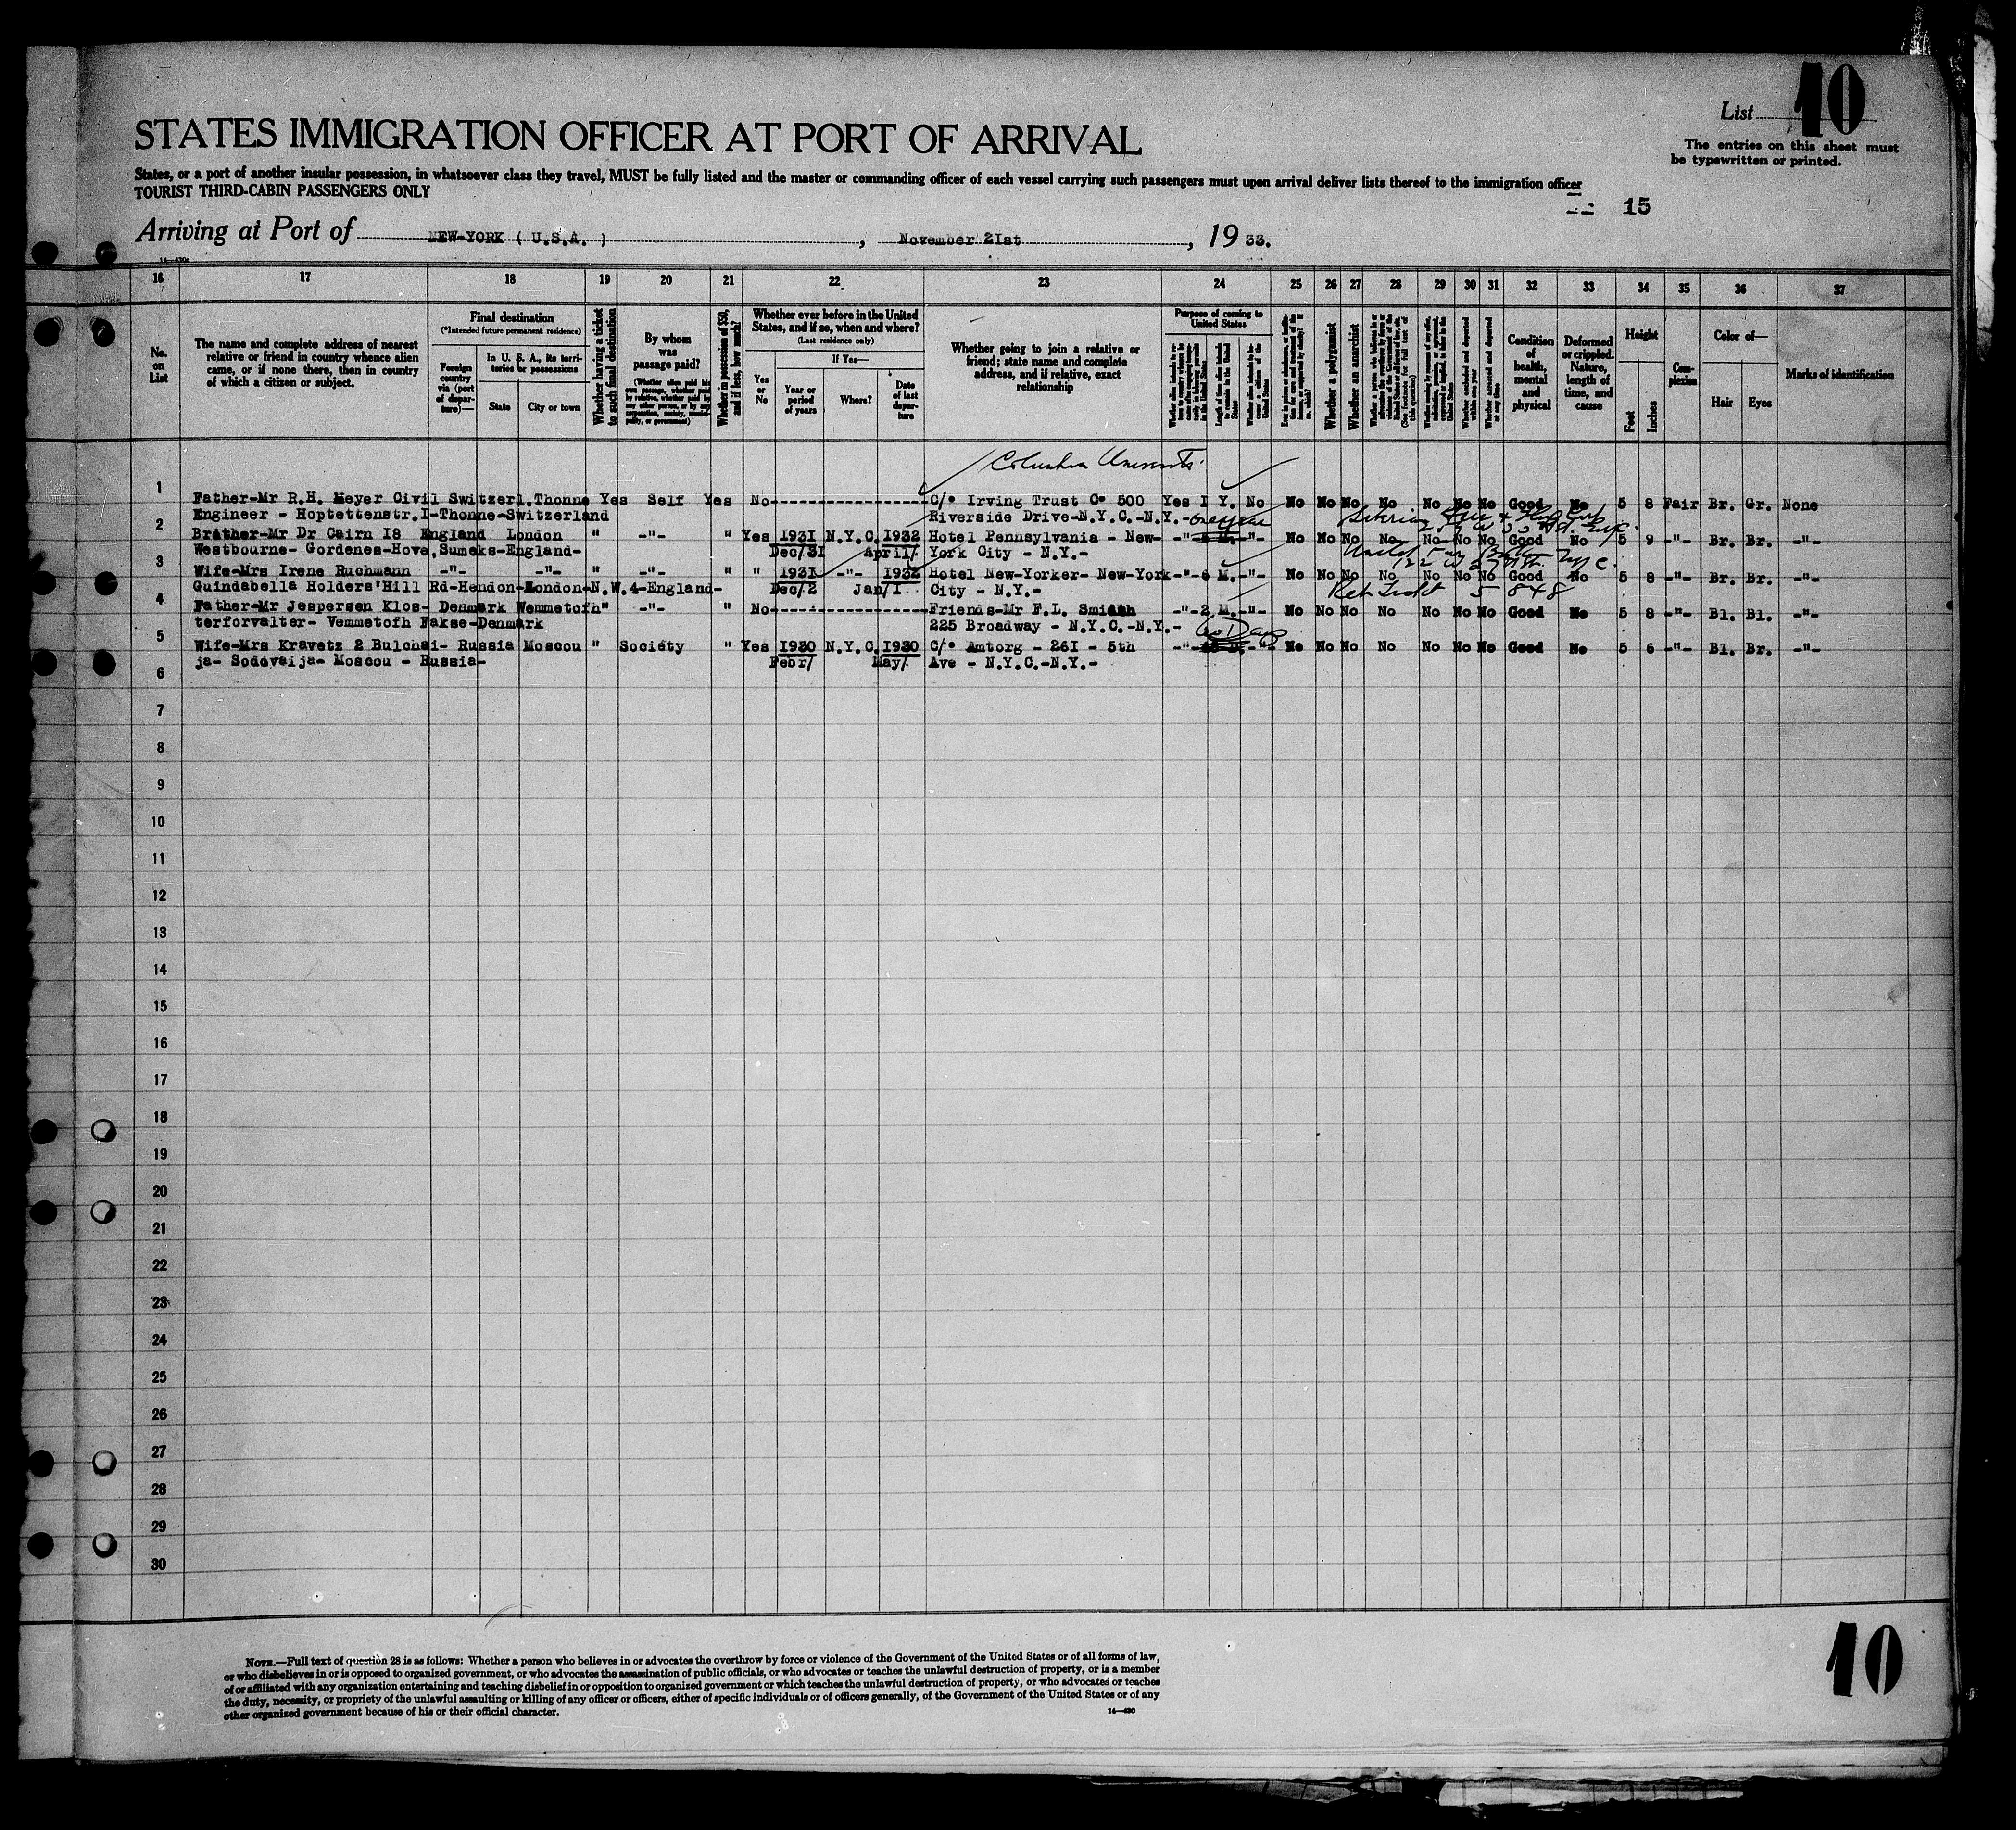 List 10
The entries on this sheet must
be typewritten or printed.
STATES IMMIGRATION OFFICER AT PORT OF ARRIVAL
States, or a port of another insular possession, in whatsoever class they travel, MUST be fully listed and the master or commanding officer of each vessel carrying such passengers must upon arrival deliver lists thereof to the immigration officer
TOURIST THIRD-CABIN PASSENGERS ONLY
15
Arriving at Port of NEW-YORK ( U.S.A. ) , November 2Ist , 19 33.
16 17 18 19 20 21 22 23 24 25 26 27 28 29 30 31 32 33 34 35 36 37
No. on List
The name and complete address of nearest relative or friend in country whence alien came, or if none there, then in country of which a citizen or subject.
Final destination
(*Intended future permanent residence)
Foreign country via (port of departure)—
In U. S. A., its territories or possessions
State
City or town
Whether having a ticket to such final destination
By whom was passage paid?
Whether in possession of $50, and if less, how much?
Whether ever before in the United States, and if so, when and where?
(Last residence only)
Yes or No
If Yes—
Year or period of years
Where?
Date of last departure
Whether going to join a relative or friend; state name and complete address, and if relative, exact relationship
Purpose of coming to United States
Whether a polygamist
Whether an anarchist
Condition of health, mental and physical
Deformed or crippled. Nature, length of time, and cause
Height
Feet
Inches
Complexion
Color of—
Hair
Eyes
Marks of identification
Columbia
1 Father-Mr R.H. Meyer Civil Switzerl.Thonne Yes Self Yes No C/o Irving Trust Co 500 Yes I Y. No No No No No No No No Good No 5 8 Fair Br. Gr. None
Engineer - Hoptettenstr.I-Thonne-Switzerland Riverside Drive-N.Y.C.-N.Y.-
2 Brother-Mr Dr Cairn I8 England London " -"- " Yes 1931 N.Y.C. 1932 Hotel Pennsylvania - New- -"- -"- No No No No No No No Good No 5 9 -"- Br. Br. -"-
Westbourne- Gordenes-Hove,Sumeks-England- Dec/3I April/ York City - N.Y.-
3 Wife-Mrs Irene Ruchmann -"- -"- " -"- " " 1931 -"- 1932 Hotel New-Yorker- New-York -"- 6 M. -"- No No No No No No No Good No 5 8 -"- Br. Br. -"-
Guindabella Holders'Hill Rd-Hendon-London-N.W.4-England- Dec/2 Jan/I City - N.Y.-
4 Father-Mr Jespersen Klos- Denmark Wemmetofh " -"- " No Friends-Mr F.L. Smidth -"- 2 M. -"- No No No No No No No Good No 5 8 -"- Bl. Bl. -"-
terforvalter- Vemmetofh Fakse-Denmark 225 Broadway - N.Y.C.-N.Y.-
60 Days
5 Wife-Mrs Kravetz 2 Bulchai- Russia Moscou " Society " Yes 1930 N.Y.C. 1930 C/o Amtorg - 26I - 5th -"- -"- No No No No No No No Good No 5 6 -"- Bl. Br. -"-
ja- Sodovaija- Moscou - Russia- Febr/ May/ Ave - N.Y.C.-N.Y.-
6
7
8
9
10
11
12
13
14
15
16
17
18
19
20
21
22
23
24
25
26
27
28
29
30
NOTE.—Full text of question 28 is as follows: Whether a person who believes in or advocates the overthrow by force or violence of the Government of the United States or of all forms of law,
or who disbelieves in or is opposed to organized government, or who advocates the assassination of public officials, or who advocates or teaches the unlawful destruction of property, or is a member
of or affiliated with any organization entertaining and teaching disbelief in or opposition to organized government or which teaches the unlawful destruction of property, or who advocates or teaches
the duty, necessity, or propriety of the unlawful assaulting or killing of any officer or officers, either of specific individuals or of officers generally, of the Government of the United States or of any
other organized government because of his or their official character.
14—430
10